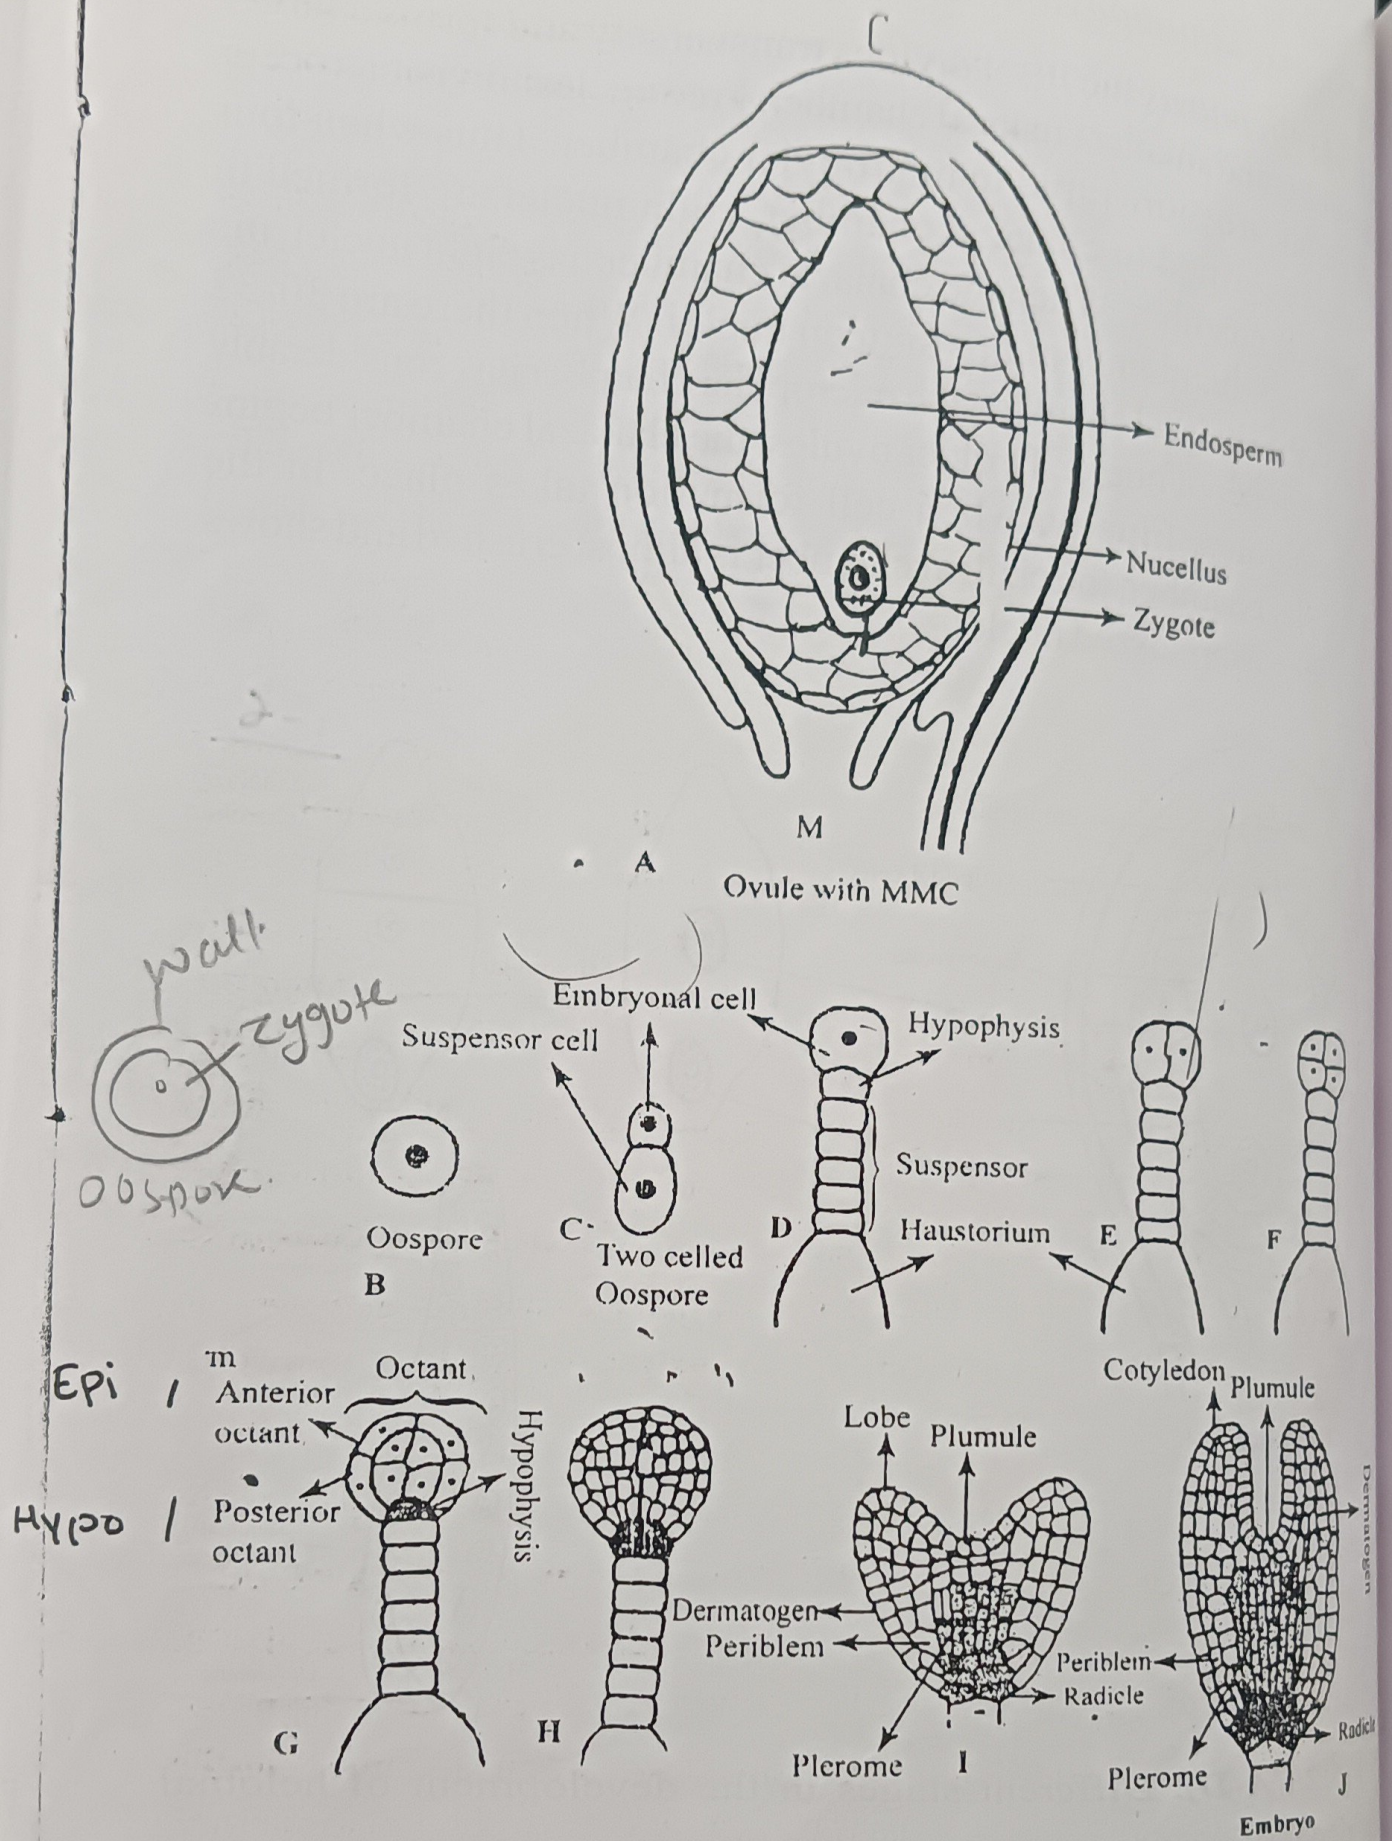 C
Endosperm
Nucellus
Zygote
M
A
Ovule with MMC
2-
wall.
zygote
Oospore.
Embryonal cell
Suspensor cell
Hypophysis
Suspensor
Haustorium
Oospore
B
C
Two celled
Oospore
D
E
F
Epi /
Hypo /
m
Anterior
octant
Octant
Posterior
octant
Hypophysis
G
H
Lobe
Plumule
Dermatogen
Periblem
Radicle
Plerome
I
Cotyledon
Plumule
Dermatogen
Periblem
Radicle
Plerome
J
Embryo